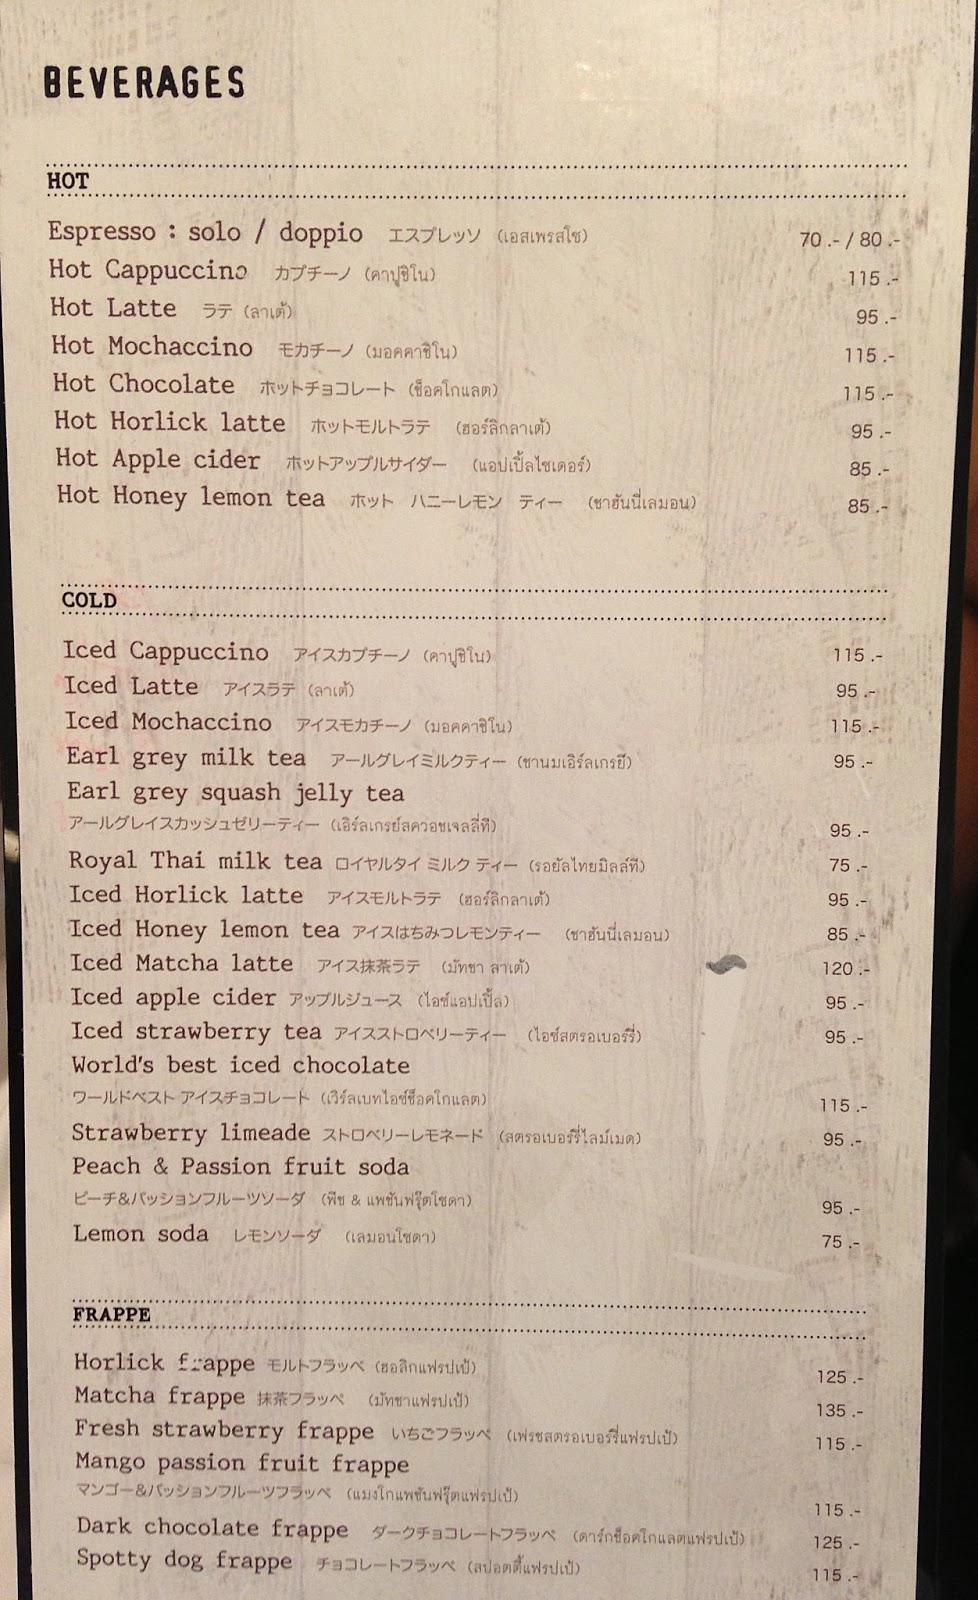 BEVERAGES
HOT
Espresso : solo / doppio エスプレッソ (เอสเพรสโซ) 70 .- / 80 .-
Hot Cappuccino カプチーノ (คาปูชิโน) 115 .-
Hot Latte ラテ (ลาเต้) 95 .-
Hot Mochaccino モカチーノ (มอคคาชิโน) 115 .-
Hot Chocolate ホットチョコレート (ช็อคโกแลต) 115 .-
Hot Horlick latte ホットモルトラテ (ฮอร์ลิกลาเต้) 95 .-
Hot Apple cider ホットアップルサイダー (แอปเปิ้ลไซเดอร์) 85 .-
Hot Honey lemon tea ホット ハニーレモン ティー (ชาฮันนี่เลมอน) 85 .-
COLD
Iced Cappuccino アイスカプチーノ (คาปูชิโน) 115 .-
Iced Latte アイスラテ (ลาเต้) 95 .-
Iced Mochaccino アイスモカチーノ (มอคคาชิโน) 115 .-
Earl grey milk tea アールグレイミルクティー (ชานมเอิร์ลเกรย์) 95 .-
Earl grey squash jelly tea
アールグレイスカッシュゼリーティー (เอิร์ลเกรย์สควอชเจลลี่ที) 95 .-
Royal Thai milk tea ロイヤルタイ ミルク ティー (รอยัลไทยมิลล์ที) 75 .-
Iced Horlick latte アイスモルトラテ (ฮอร์ลิกลาเต้) 95 .-
Iced Honey lemon tea アイスはちみつレモンティー (ชาฮันนี่เลมอน) 85 .-
Iced Matcha latte アイス抹茶ラテ (มัทชา ลาเต้) 120 .-
Iced apple cider アップルジュース (ไอซ์แอปเปิ้ล) 95 .-
Iced strawberry tea アイスストロベリーティー (ไอซ์สตรอเบอร์รี่) 95 .-
World's best iced chocolate
ワールドベスト アイスチョコレート (เวิร์ลเบทไอซ์ช็อคโกแลต) 115 .-
Strawberry limeade ストロベリーレモネード (สตรอเบอร์รี่ไลม์เมด) 95 .-
Peach & Passion fruit soda
ピーチ&パッションフルーツソーダ (พีช & แพชันฟรุ๊ตโซดา) 95 .-
Lemon soda レモンソーダ (เลมอนโซดา) 75 .-
FRAPPE
Horlick frappe モルトフラッペ (ฮอลิกแฟรปเป้) 125 .-
Matcha frappe 抹茶フラッペ (มัทชาแฟรปเป้) 135 .-
Fresh strawberry frappe いちごフラッペ (เฟรชสตรอเบอร์รี่แฟรปเป้) 115 .-
Mango passion fruit frappe
マンゴー&パッションフルーツフラッペ (แมงโกแพชันฟรุ๊ตแฟรปเป้) 115 .-
Dark chocolate frappe ダークチョコレートフラッペ (ดาร์กช็อคโกแลตแฟรปเป้) 125 .-
Spotty dog frappe チョコレートフラッペ (สปอตตี้แฟรปเป้) 115 .-